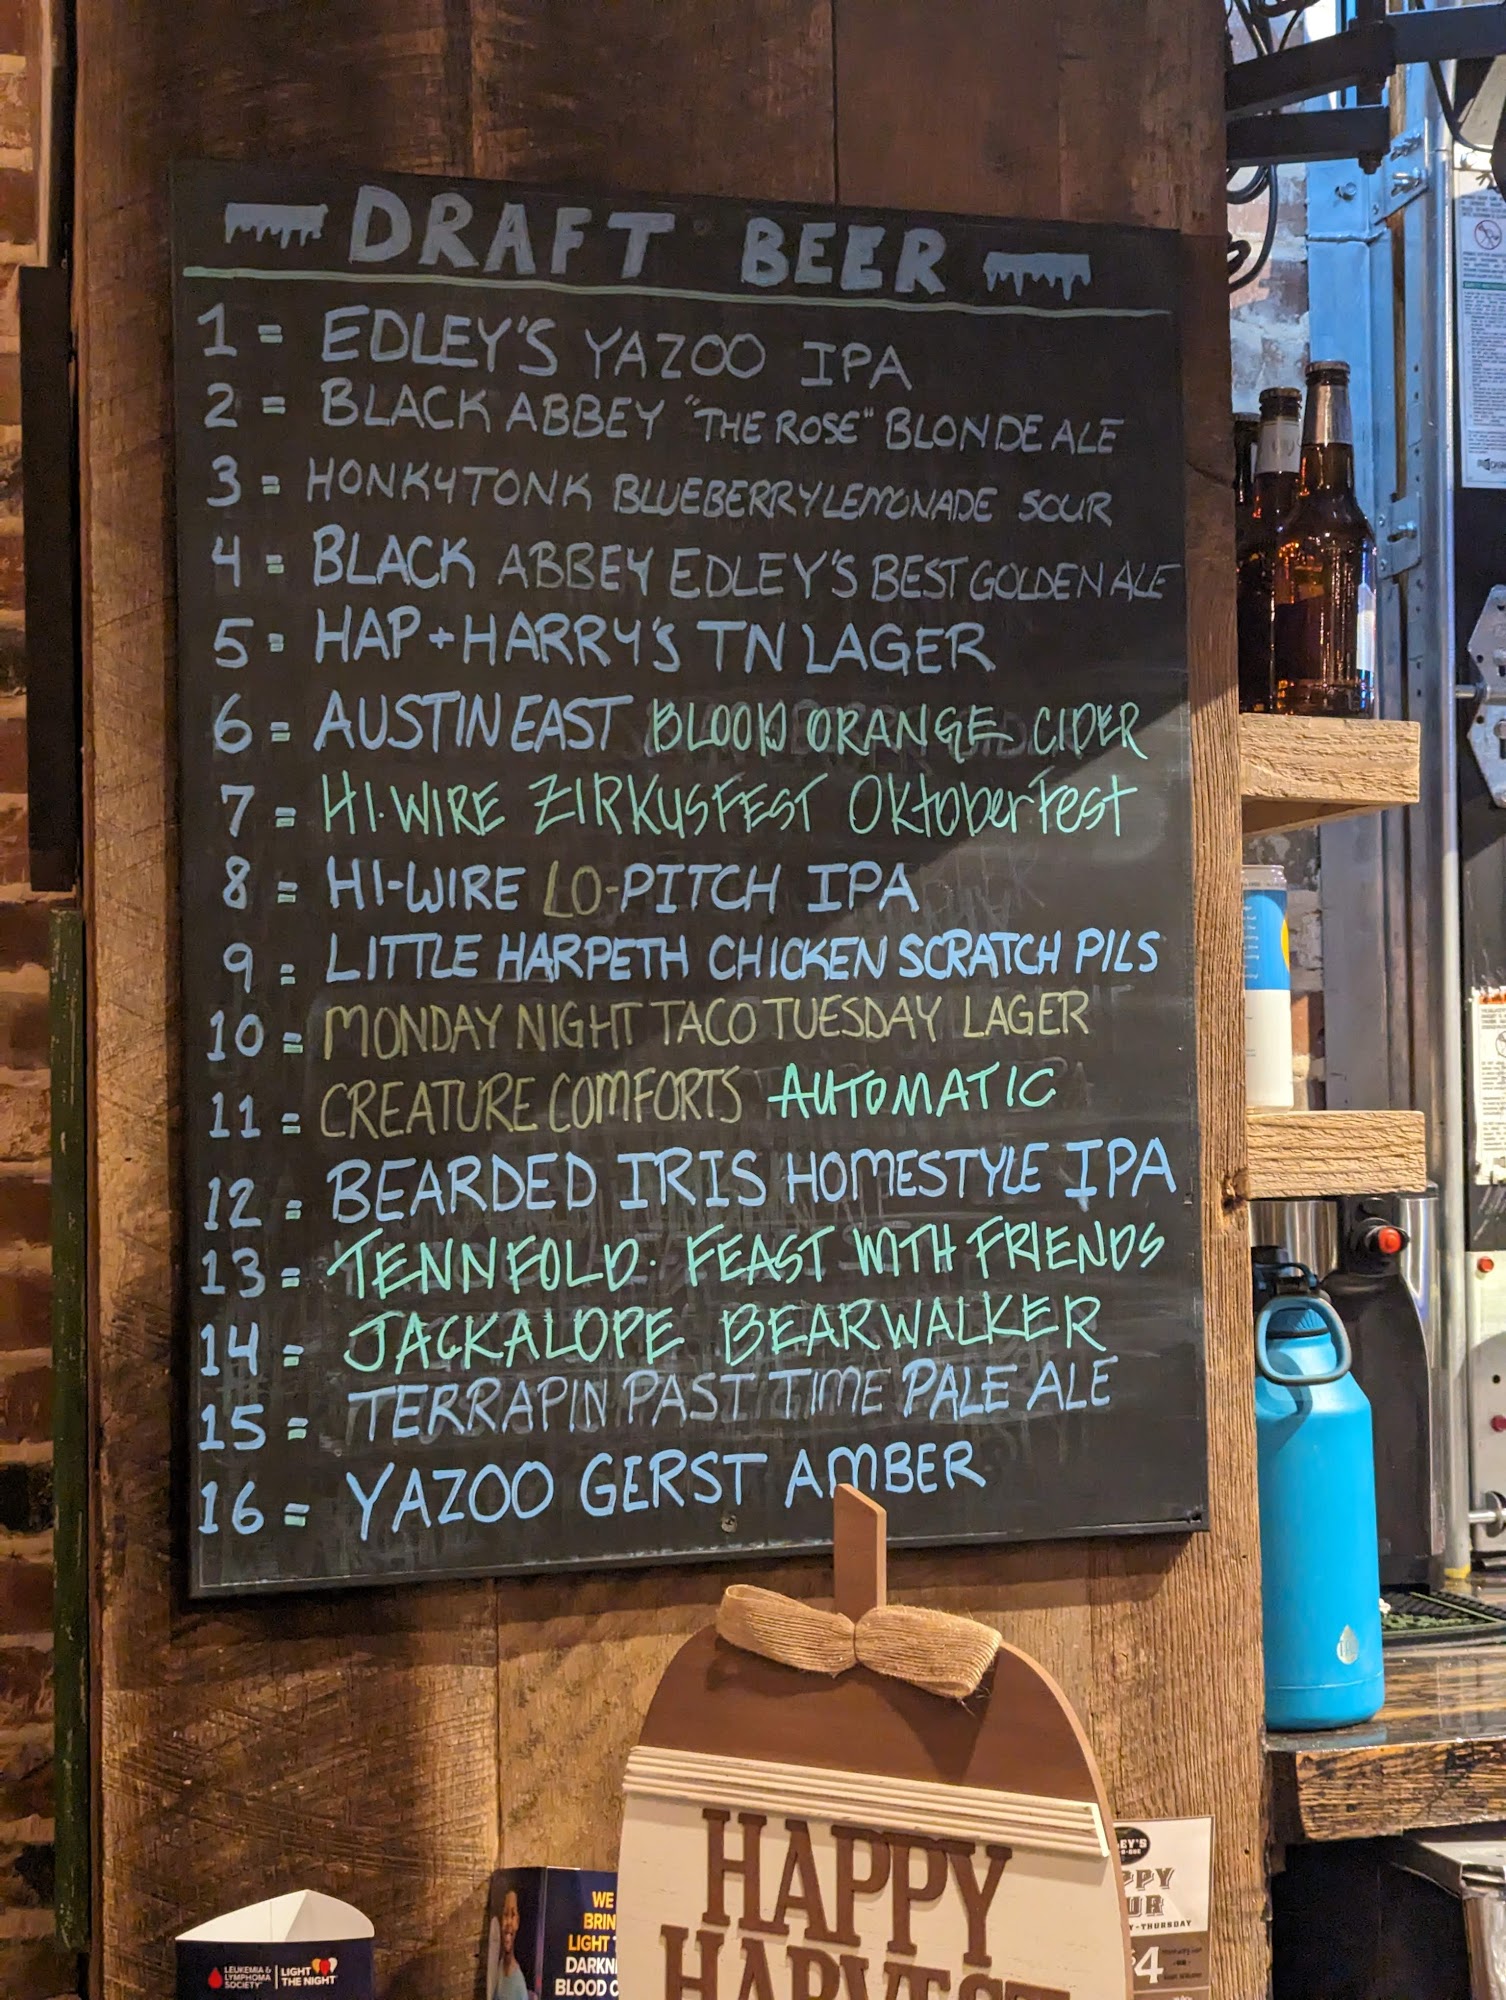 DRAFT BEER
1 = EDLEY'S YAZOO IPA
2 = BLACK ABBEY "THE ROSE" BLONDE ALE
3 = HONKYTONK BLUEBERRY LEMONADE SOUR
4 = BLACK ABBEY EDLEY'S BEST GOLDEN ALE
5 = HAP + HARRY'S TN LAGER
6 = AUSTIN EAST BLOOD ORANGE CIDER
7 = HI-WIRE ZIRKUSFEST OktoberFest
8 = HI-WIRE LO-PITCH IPA
9 = LITTLE HARPETH CHICKEN SCRATCH PILS
10 = MONDAY NIGHT TACO TUESDAY LAGER
11 = CREATURE COMFORTS AUTOMATIC
12 = BEARDED IRIS HOMESTYLE IPA
13 = TENNFOLD · FEAST WITH FRIENDS
14 = JACKALOPE BEARWALKER
15 = TERRAPIN PAST TIME PALE ALE
16 = YAZOO GERST AMBER
HAPPY
HARVEST
LEUKEMIA &
LYMPHOMA
SOCIETY
LIGHT
THE NIGHT
WE
BRIN
LIGHT
DARKN
BLOOD C
EY'S
PPY
UR
Y-THURSDAY
$4